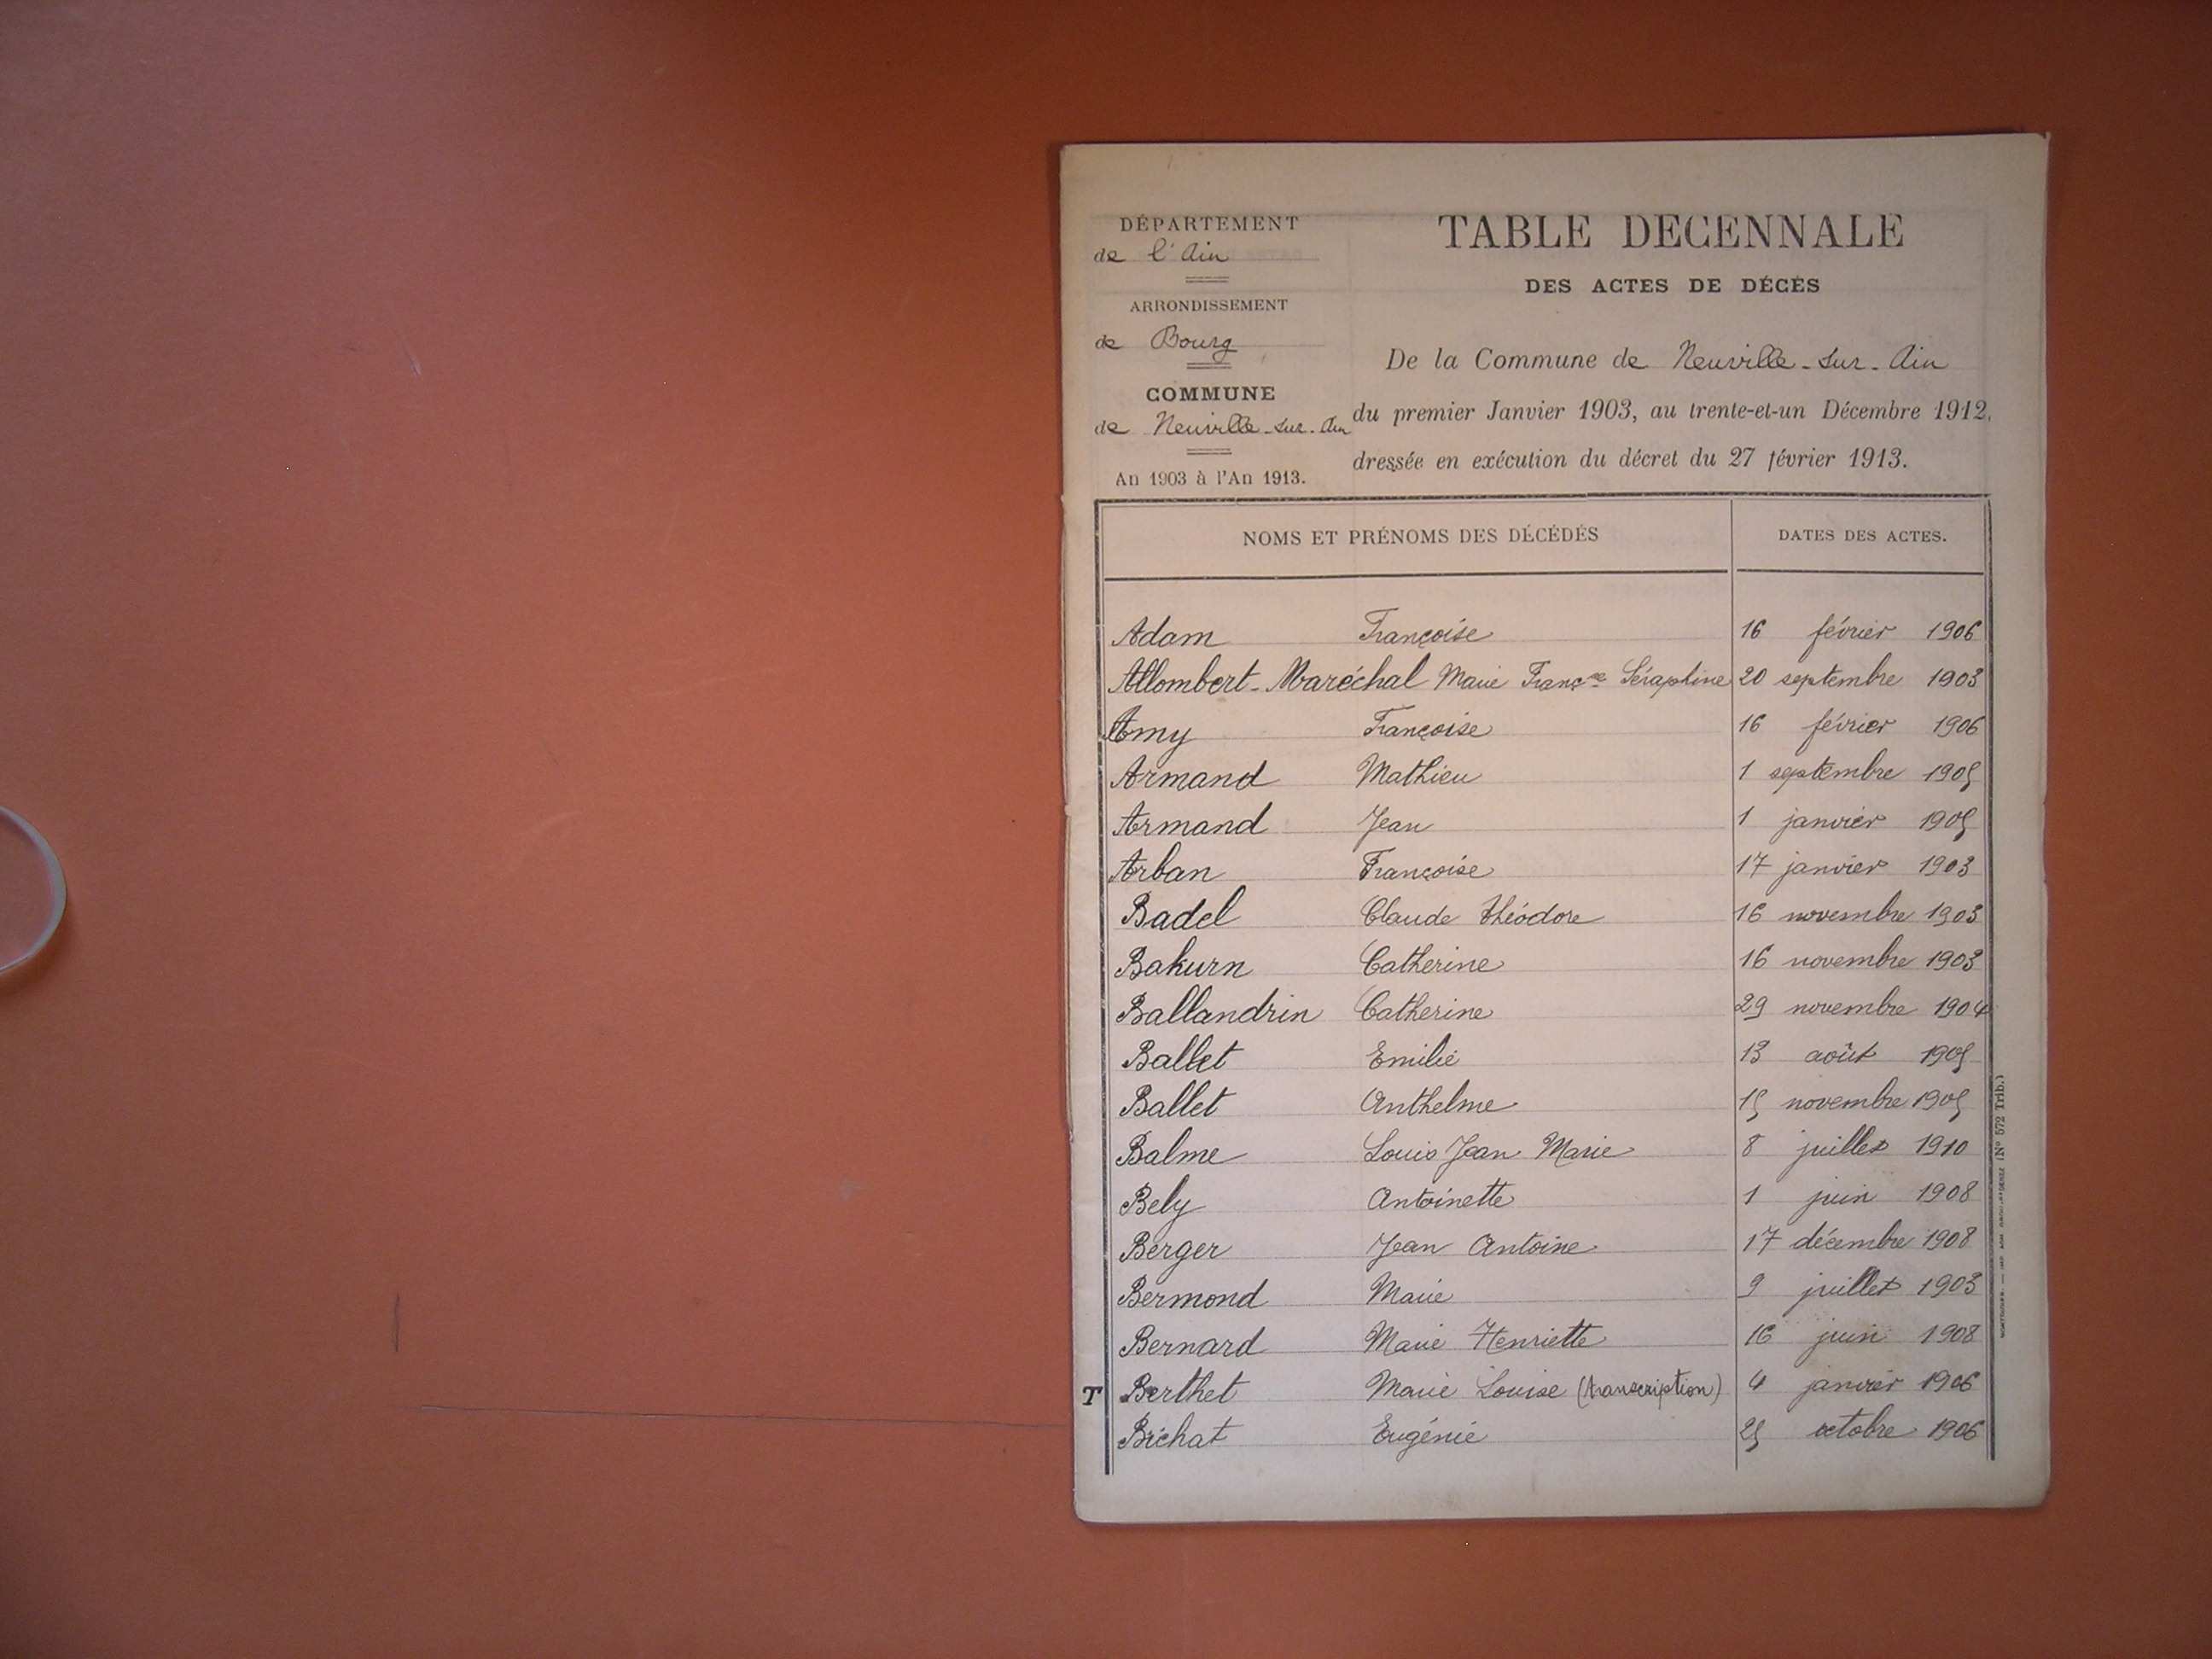 DÉPARTEMENT
de l'Ain
ARRONDISSEMENT
de Bourg
COMMUNE
de Neuville-sur-Ain
An 1903 à l'An 1913.
TABLE DECENNALE
DES ACTES DE DÉCÈS
De la Commune de Neuville-sur-Ain
du premier Janvier 1903, au trente-et-un Décembre 1912,
dressée en exécution du décret du 27 février 1913.
NOMS ET PRÉNOMS DES DÉCÉDÉS DATES DES ACTES.
Adam Françoise 16 février 1906
Allombert-Maréchal Marie Franç.se Séraphine 20 septembre 1903
Amy Françoise 16 février 1906
Armand Mathieu 1 septembre 1905
Armand Jean 1 janvier 1905
Arban Françoise 17 janvier 1903
Badel Claude Théodore 16 novembre 1903
Bakurn Catherine 16 novembre 1903
Ballandrin Catherine 29 novembre 1904
Ballet Emilie 13 août 1905
Ballet Anthelme 15 novembre 1905
Balme Louis Jean Marie 8 juillet 1910
Bely Antoinette 1 juin 1908
Berger Jean Antoine 17 décembre 1908
Bermond Marie 9 juillet 1903
Bernard Marie Henriette 16 juin 1908
T Berthet Marie Louise (transcription) 4 janvier 1906
Bichat Eugénie 25 octobre 1906
(N° 572 Trib.)